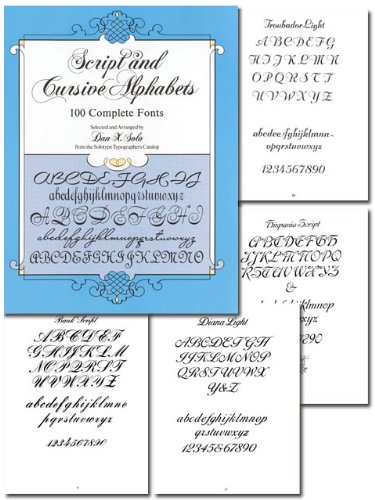 Script and
Cursive Alphabets
100 Complete Fonts
Selected and Arranged by
Dan X. Solo
from the Solotype Typographers Catalog
ABCDEFGHIJ
abcdefghijklmnopqrstuvwxyz
ABCDEFGHI
abcdefghijklmnopqrstuvwxyz
ABCDEFGHIJKLMNO
Troubador Light
ABCDEFG
HIJKLMN
OPQRST
UVWXYZ
abcdee-fghijklmno-
pqrstuvwxyz
1234567890
Hispania Script
&
Bank Script
ABCDEF
GHIJKL
MNOPQRST
UVWXYZ
abcdefghijklmno
pqrstuvwxyz
1234567890
Diana Light
ABCDEFGH
IJKLMNOP
QRSTUVWX
Y&Z
abcdefghijklmnop
qrstuvwxyz
12345&67890